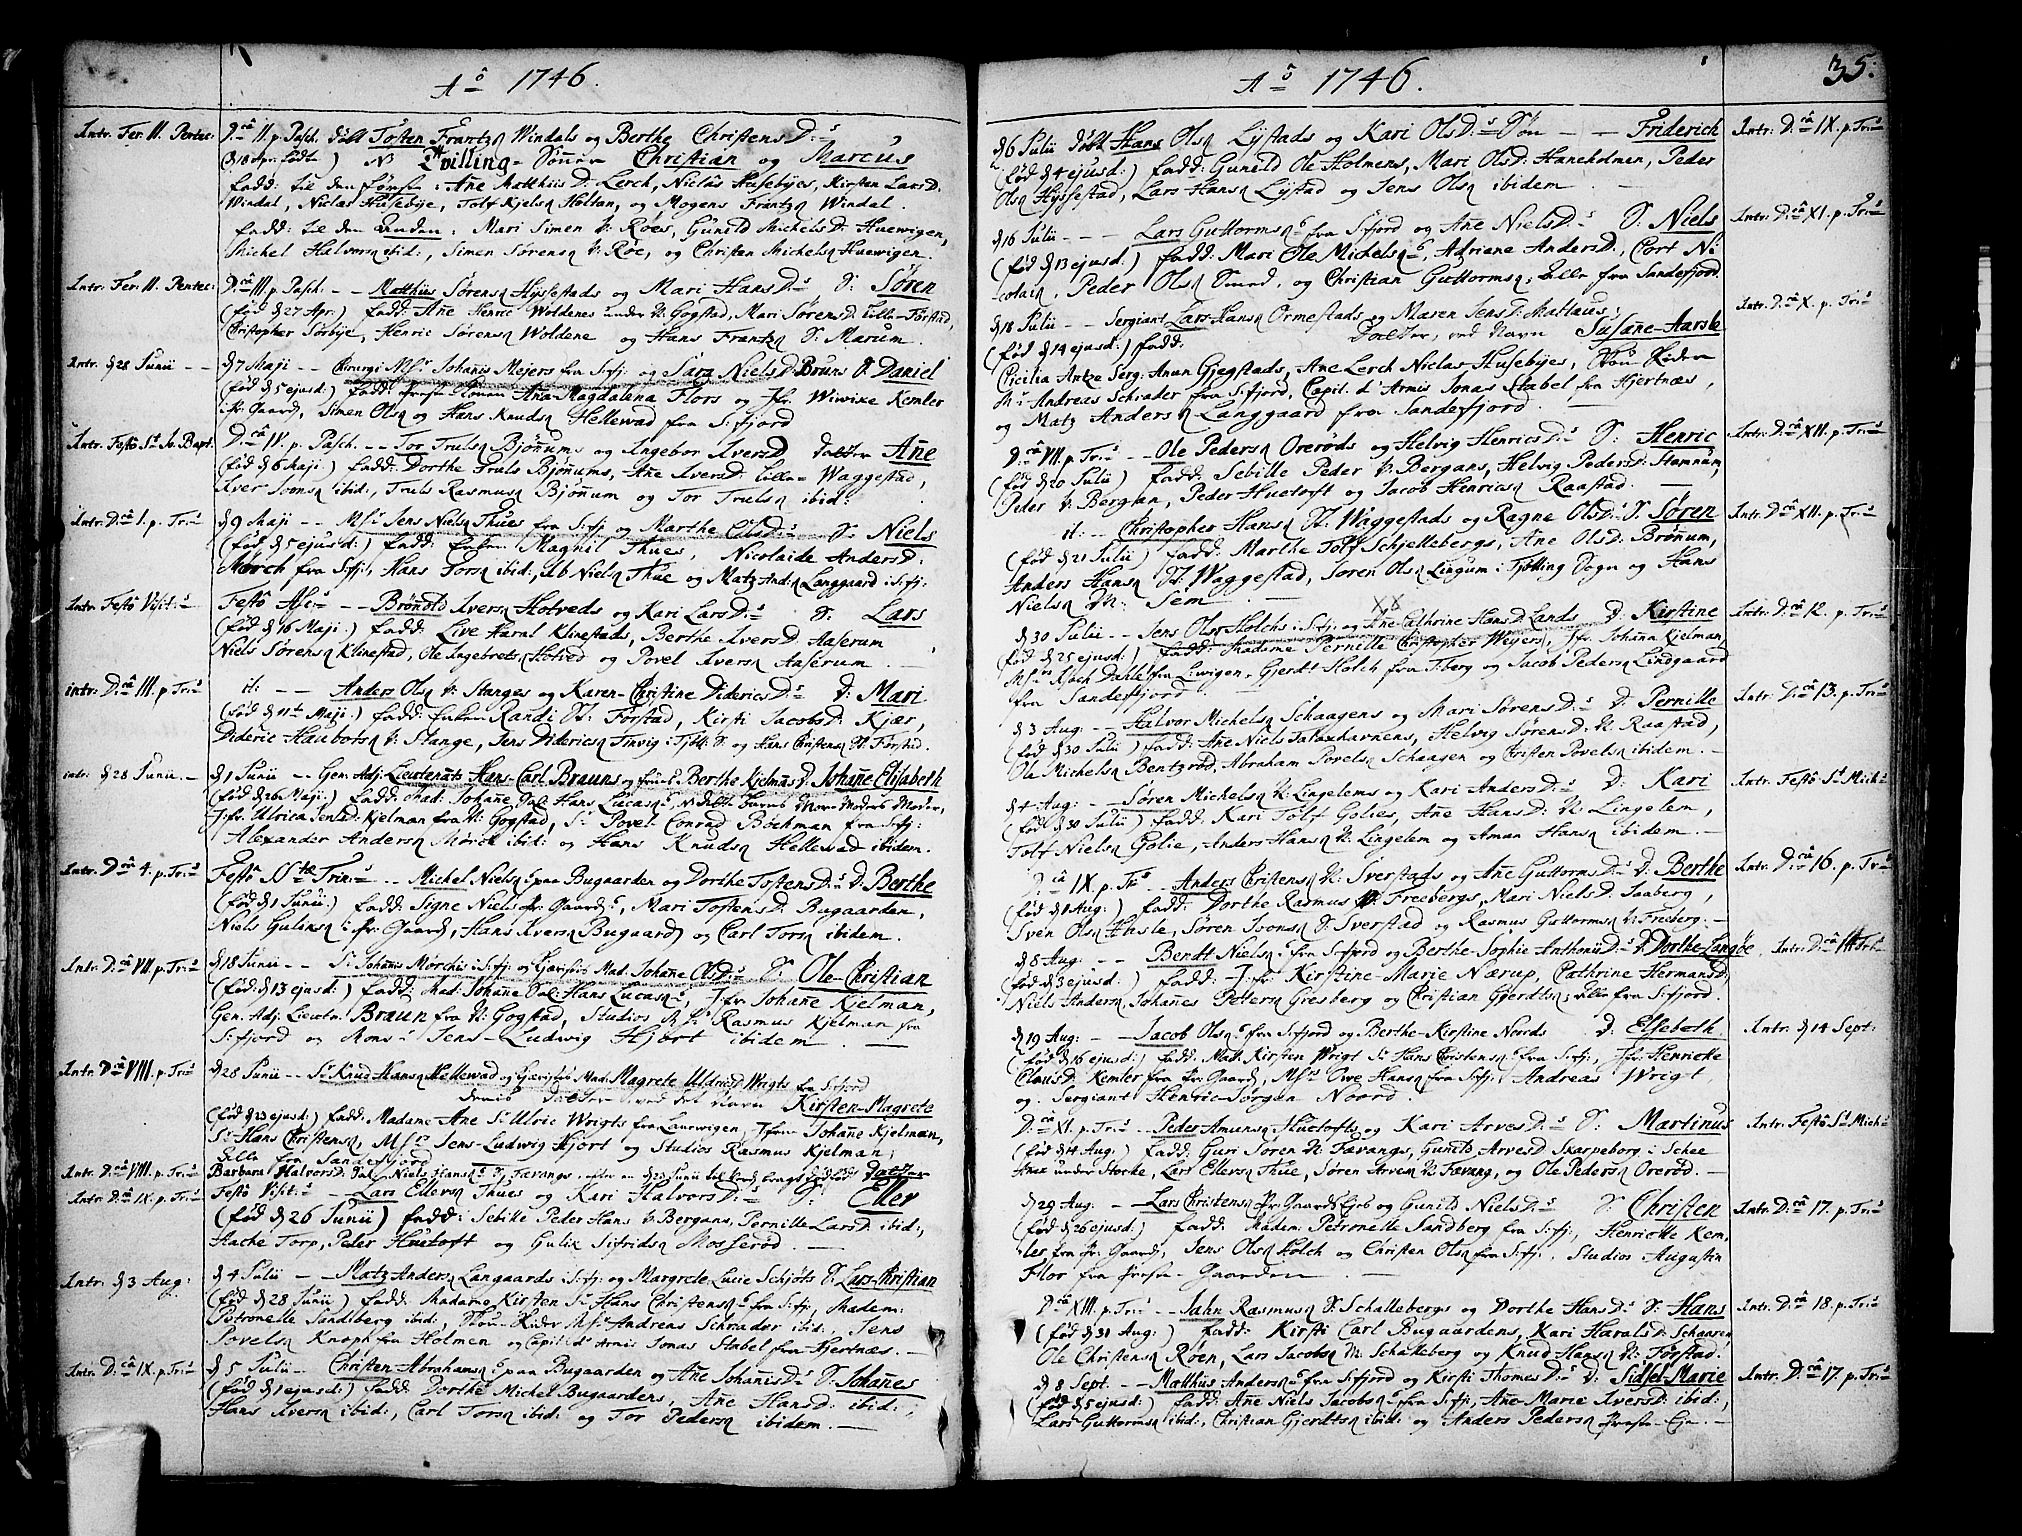 Aô 1746.
Intr. Fer. II. Pentec: D:câ II. p. Pasch. døbt Tosten Frantzs Windals og Berthe Christens D:s
(d 18 Apr. født) NB Tvilling-Sønner Christian og Marcus
fadd: til den første: Ane Matthiis D: Lerch, Niclas Husebyes, Kirsten Lars D:
Windal, Niclas Husebye, Tolf Kjels Holtan, og Mogens Frantz Windal.
fadd: til den Anden: Mari Simen V: Röes, Gunild Michels D: Huewigen,
Michel Halvors ibid:, Simen Sørens V: Röe, og Christen Michels Huewigen.
Intr. Fer. II. Pentec: D:câ III. p. Pasch: -- Matthiis Sørens Hÿssestads og Mari Hans D:s S: Søren
(fød d 27 Apr.) fadd: Ane Henric Woldenes under N: Gogstad, Mari Sørens D. Lille-Förstad,
Christopher Sörbÿe, Henric Sørens Woldene og Hans Frantz S: Marum.
Intr. d 28 Junii -- d 7 Maji -- Chirurgi Msr Johanis Mejers fra S:fj: og Sara Niels D Bruns S. Daniel
(fød d 5 ejusd:) fadd: Ane-Magdalena Flors og Jfr. Wiwike Kemler
i Pr: Gaard, Simen Ols og Hans Knuds Hellewad fra S:fjord
Intr. Festô St. Jo. Bapt. D:câ IV. p. Pasch. -- Tor Truls Bjönnums og Ingebor Ivers D. datter Ane
(fød d 6 Maji) fadd: Dorthe Truls Bjönums, Ane Ivers D: Lille-Waggestad,
Iver Joens ibid:, Truls Rasmus Bjönnum og Tor Truls ibid:
Intr. D:câ I. p. Tr:s d 9 Maji -- Msr Jens Niels Thues fra S:fj: og Marthe Ols D:s S: Niels
(fød d 5 ejusd:) fadd: Magnil Thues, Nicolaide Anders D:
Mörch fra S:fj:, Hans Tors ibid:, Ib Niels Thue og Matz And: Langgaard i S:fj:
Intr. Festô Visit: Festô Asc: -- Brönild Ivers Hotveds og Kari Lars D:s S: Lars
(fød d 16 Maji.) fadd: Live Haral Klinestads, Berthe Ivers D. Aaserum
Niels Sørens Klinestad, Ole Ingebrets Hotved og Povel Ivers Aaserum.
intr: D:câ III. p. Tr:s it: -- Anders Ols V: Stanges og Karen-Christine Dideric D:s D: Mari
(fød d 11t Maji.) fadd: Randi St: Förstad, Kirsti Jacobs D: Kjær,
Dideric Haubots V: Stange, Jens Dideric Tinvig i Tjöll: S: og Hans Christens St Förstad.
intr: d 28 Junii. -- d 1 Junii -- Gen: Adj: Lieutenants Hans-Carl Brauns og frues Berthe Kjelmans D. Johane Elisabeth
(fød d 26 Maji.) fadd: Mad: Johane Sal. Hans Lucas,
Jfr. Ulrica Jens D: Kjelman fra N: Gogstad, Sr Povel-Conrad Böckman fra S:fj:
Alexander Anders Mörck ibid: og Hans Knuds Hellewad ibidem.
Intr. D:câ 4. p. Tr:s Festô SStæ Trin:s -- Michel Niels paa Bugaarden og Dorthe Tostens D:s D. Berthe
(fød d 1 Junii.) fadd: Signe Niels Pr: Gaard, Mari Tostens D: Bugaarden,
Niels Gulens i Pr: Gaard, Hans Ivers Bugaard og Carl Tors ibidem.
Intr. D:câ VII. p. Tr:s d 18 Junii -- Sr Johanis Mörchs i S:fj: og Mad. Johane Ols D:s S: Ole-Christian
(fød: d 13 ejusd:) fadd: Mad: Johane Sal: Hans Lucas, Jfr Johane Kjelman,
Gen. Adj. Lieutn. Braun fra N: Gogstad, Studios Msr Rasmus Kjelman fra
S:fjord og Mons:r Jens-Ludwig Hjort ibidem.
Intr. D:câ VIII. p. Tr:s d 28 Junii -- Sr Knud Hans Hellewad og Mad. Magrete Uldrics D. Wrigts fra S:fjord
deris Datter ved det Navn Kirsten-Magrete
(fød d 23 ejusd:) fadd: Madame Ane Sr Ulric Wrigts fra Laurwigen, Jfr Johane Kjelman,
Sr Hans Christens, Msr Jens-Ludwig Hjort og Studios Rasmus Kjelman,
alle fra Sandefjord
Intr. D:câ VIII. p. Tr:s Barbara Halvors D. Sal. Niels Hans
Intr. D:câ IX. p. Tr:s Festô Visit:s -- Lars Ellers Thues og Kari Halvors D:s S: Eller
(fød d 26 Junii) fadd: Sebille Peder Hans V: Bergans, Pernille Lars D: ibid:,
Aache Torp, Peder Huetoft og Gulix Sifrids Mosserød.
Intr. d 3 Aug: d 4 Julii -- Matz Anders Langaards i S:fj: og Margrete Lucie Schjöts S. Lars-Christian
(fød d 28 Junii) fadd: Madame Kirsten Sr Hans Christens fra S:fj:, Madem:
Petronelle Sandberg ibid:, Stou-Rider Msr Andreas Schrader ibid:, Jens
Povels Knoph fra Holmen og Capit: d' Armis Jonas Stabel fra Hjertnæs.
Intr. D:câ IX. p. Tr:s d 5 Julii -- Christen Abrahams paa Bugaarden og Ane Johanis D:s S: Johanes
(fød d 1 ejusd:) fadd: Dorthe Michel Bugaardens, Ane Hans D: ibid:,
Hans Ivers ibid:, Carl Tors ibid: og Tor Peders ibidem.
Aô 1746. 35.
d 6 Julii døbt Hans Ols Lÿstads og Kari Ols D:s Søn -- Friderich Intr: D:câ IX. p. Tr:s
(fød d 4 ejusd:) fadd: Gunild Ole Holmens, Mari Ols D: Haneholmen, Peder
Ols Hÿssestad, Lars Hans Lÿstad og Jens Ols ibidem.
d 16 Julii -- Lars Guttorms fra S:fjord og Ane Niels D:s S. Niels Intr: D:câ XI. p. Tr:s
(fød d 13 ejusd:) fadd: Mari Ole Michels, Adriane Anders D:, Cort Ni-
colai, Peder Ols Smed, og Christian Guttorms, alle fra Sandefjord.
d 18 Julii -- Sergiant Lars Hans Ormestads og Maren Jens D: Matlaus Intr: D:câ X. p. Tr:s
Datter, ved Navn Susane-Aarsle
(fød d 14 ejusd:) fadd:
Cicilia Antze Serg: Anun Gjegstads, Ane Lerch Niclas Husebÿes, Stou Rider
Msr Andreas Schrader fra S:fjord, Capit. d' Armis Jonas Stabel fra Hjertnæs,
og Matz Anders Langgaard fra Sandefjord.
D:câ VII. p. Tr:s -- Ole Peders Orerøds og Helvig Henrics D:s S: Henric Intr: D:câ XII. p. Tr:s
(fød d 20 Julii) fadd: Sebille Peder V: Bergans, Helvig Peders D: Hamnum,
Peder V: Bergan, Peder Huetoft og Jacob Henrics Raastad.
it: -- Christopher Hans St. Waggestads og Ragne Ols D: S. Søren Intr: D:câ XII. p. Tr:s
(fød d 21 Julii) fadd: Marthe Tolf Schjellebergs, Ane Ols D: Brönum,
Anders Hans St. Waggestad, Søren Ols Lingum i Tjölling Sogn og Hans
Niels N: Sem
d 30 Julii -- Jens Ols Holchs i S:fj: og Ane Cathrine Hans D Lands D: Kirstine Intr: D:câ 12. p. Tr:s
(fød d 25 ejusd:) fadd: Madame Pernille Christopher Weyers, Jfr. Johann Kjelman,
Isach Dahl fra L:wigen, Gjerdt Holch fra T:berg og Jacob Peders Lindgaard
fra Sandefjord.
d 3 Aug: -- Halvor Michels Schaagens og Mari Sørens D:s D: Pernille Intr: D:câ 13. p. Tr:s
(fød d 30 Julii) fadd: Ane Niels havnens, Helvig Sørens D. N: Raastad,
Ole Michels Bentzrød, Abraham Povels Schaagen og Christen Povels ibidem.
d 4 Aug: -- Søren Michels N: Lingelems og Kari Anders D:s D: Kari Intr. Festô St Mich:s
(fød d 30 Julii) fadd: Kari Tolf Golies, Ane Hans D: N: Lingelem,
Tolf Niels Golie, Anders Hans N: Lingelem og Aman Hans ibidem.
D:câ IX. p. Tr:s -- Anders Christens N: Sverstads og Ane Guttorms D:s D: Berthe Intr: D:câ 16. p. Tr:s
(fød d 1 Aug:) fadd: Dorthe Rasmus V: Freebergs, Mari Niels D. Aaberg,
Sven Ols Hasle, Søren Joens S: Sverstad og Rasmus Guttorms V: Freeberg.
d 8 Aug: -- Bendt Niels fra S:fjord og Berthe-Sophie Anthonii D:s D. Dorthe Langøe Intr: D:câ 14 Tr:s
(fød d 3 ejusd:) fadd: Jfr: Kirstine-Marie Nærup, Cathrine Hermans D,
Niels Anders, Johanes Petters Giesberg og Christian Gjerdts; alle fra S:fjord.
d 19 Aug: -- Jacob Ols fra S:fjord og Berthe-Kirstine Noords D: Elsebeth. Intr. d 14 Sept:
(fød d 16 ejusd:) fadd: Mad: Kirsten Wrigt Sr Hans Christens fra S:fj:, Jfr Henriette
Claus D: Kemler fra Pr: Gaard, Msr Owe Hans fra S:fj:, Andreas Wrigt,
og Sergiant Henric-Jørgen Noord.
D:câ XI. p. Tr:s -- Peder Amuns Huetofts og Kari Arves D:s S: Martinus Intr: Festô St Mich:s
(fød d 14 Aug:) fadd: Guri Søren N: Fævangs, Gunild Arves D Skarpeborg i Schee
Anex under Stocke, Lars Ellers Thue, Søren Arves N: Fævang, og Ole Peders Orerød.
d 29 Aug: -- Lars Christens Pr: Gaards og Gunild Niels D:s S: Christen Intr: D:câ 17. p. Tr:s
(fød d 26 ejusd:) fadd: Madem: Petronelle Sandberg fra S:fj:, Henriette Kem-
ler fra Pr: Gaard, Jens Ols Holch og Christen Ols fra S:fj:. Studios Augustin
Flor fra Præste-Gaarden
D:câ XIII. p. Tr:s -- Jahn Rasmus S: Schallebergs og Dorthe Hans D:s S: Hans Intr: D:câ 18. p. Tr:s
(fød d 31 Aug:) fadd: Kirsti Carl Bugaardens, Kari Harals D: Schaasen
Ole Christens Røen, Lars Jacobs N: Schalleberg og Knud Hans N: Förstad.
d 8 Sept: -- Matthiis Anders fra S:fjord og Kirsti Thomes D:s D: Sidsel-Marie Intr: D:câ 17 p. Tr:s
(fød d 5 ejusd:) fadd: Ane Niels Jacobs fra S:fjord, Ane-Marie Ivers D: ibid:
Lars Guttorms ibid:, Christian Gjerdts ibid: og Anders Peders Præste-Eje.